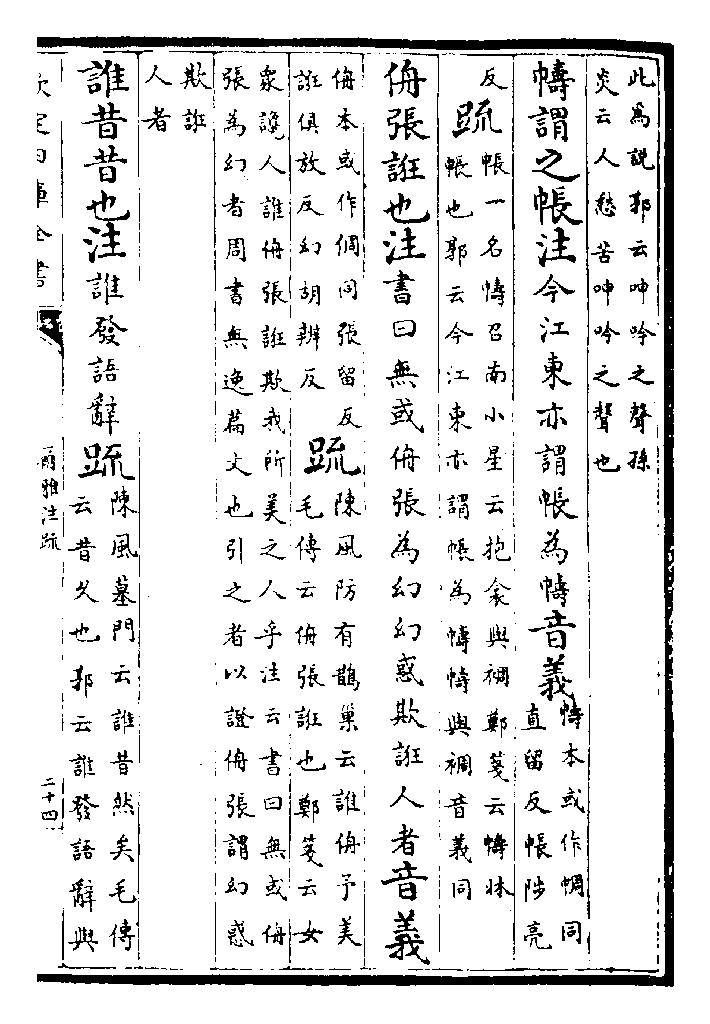 此為說郭云呻吟之聲孫
炎云人愁苦呻吟之聲也
幬謂之帳注今江東亦謂帳為幬音義幬本或作㡞同
直留反帳陟亮
反疏帳一名幬召南小星云抱衾與裯鄭箋云幬牀
帳也郭云今江東亦謂帳為幬幬與裯音義同
侜張誑也注書曰無或侜張為幻幻惑欺誑人者音義
侜本或作倜同張留反
誑俱放反幻胡辨反
疏陳風防有鵲巢云誰侜予美
毛傳云侜張誑也鄭箋云女
衆讒人誰侜張誑欺我所美之人乎注云書曰無或侜
張為幻者周書無逸篇文也引之者以證侜張謂幻惑
欺誑
人者
誰昔昔也注誰發語辭疏陳風墓門云誰昔然矣毛傳
云昔久也郭云誰發語辭與
欽定四庫全書
爾雅注疏
二十四